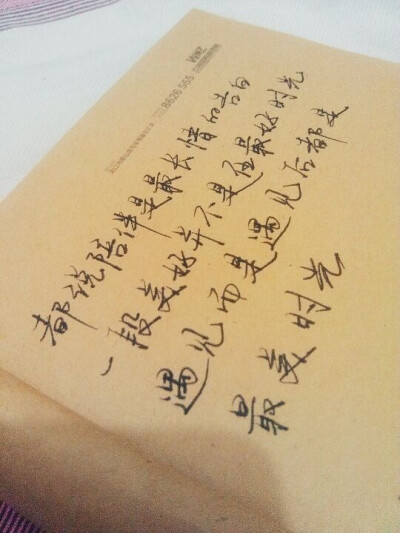 都说陪伴是最长情的告白
一段美好并不是在最好时光
遇见而是遇见后都是
最美时光
8626 555